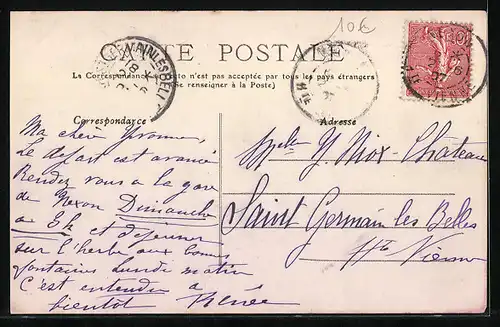 10€
CARTE POSTALE
La Correspondance au recto n'est pas acceptée par tous les pays étrangers
(Se renseigner à la Poste)
Correspondance
Adresse
Ma chère Yvonne,
Le départ est avancé
Rendez vous a la gare
de Nexon Dimanche
a 8h et déjeuner
sur l'herbe aux bonnes
fontaines lundi matin
C'est entendu a
bientôt Renée
Mlle Y. Niox-Château
Saint Germain les Belles
Hte Vienne